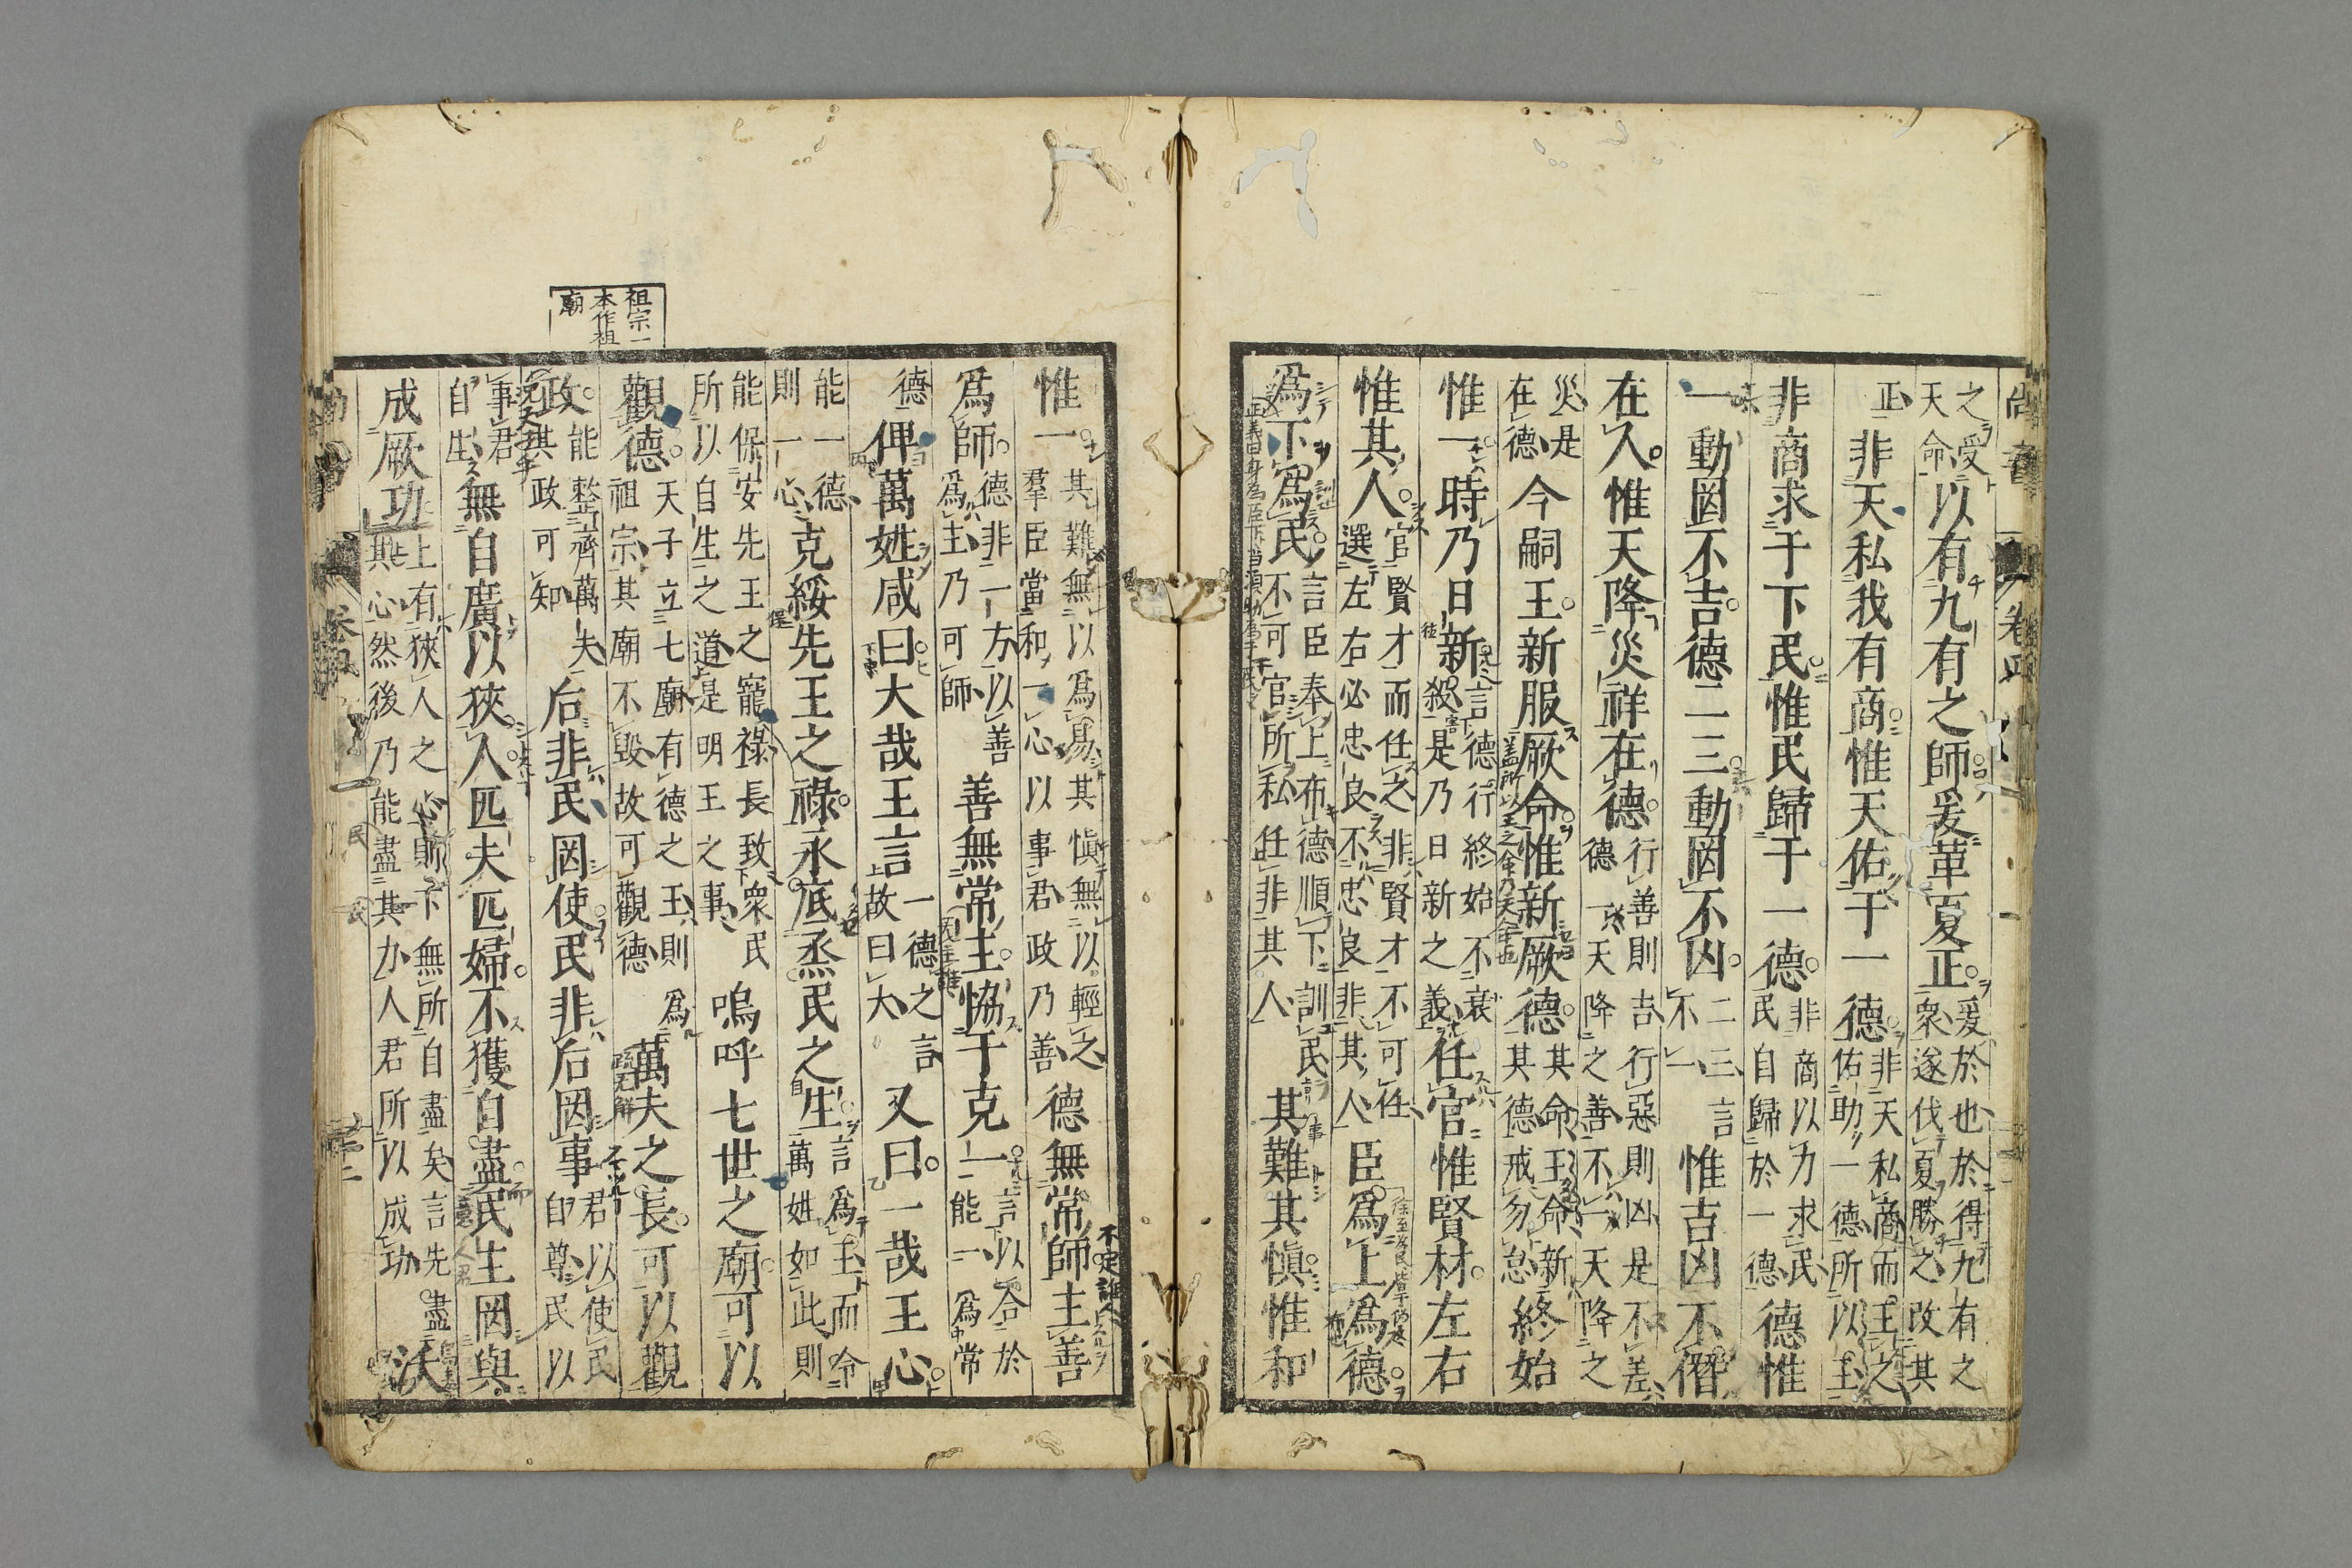 之受天命以有九有之師爰革夏正爰於也於得九有之衆遂伐夏勝之改其
正非天私我有商惟天佑于一德非天私商而王之佑助一德所以王
非商求于下民惟民歸于一德非商以力求民民自歸於一德德惟
一動罔不吉德二三動罔不凶二三言不一惟吉凶不僭
在人惟天降災祥在德行善則吉行惡則凶是不差德一天降之善不一天降之
災是在德今嗣王新服厥命惟新厥德其命王命新其德戒勿怠終始
惟一時乃日新言德行終始不衰殺是乃日新之義任官惟賢材左右
惟其人官賢才而任之非賢才不可任選左右必忠良不忠良非其人臣爲上爲德
爲下爲民言臣奉上布德順下訓民不可官所私任非其人其難其愼惟和
惟一其難無以爲易其愼無以輕之羣臣當和一心以事君政乃善德無常師主善
爲師德非一方以善爲主乃可師善無常主協于克一言以合於能一爲常
德俾萬姓咸曰大哉王言一德之言故曰大又曰一哉王心
能一德則一心克綏先王之祿永底烝民之生言爲王而令萬姓如此則
能保安先王之寵祿長致衆民所以自生之道是明王之事嗚呼七世之廟可以
觀德天子立七廟有德之王則爲祖宗其廟不毀故可觀德萬夫之長可以觀
政能整齊萬夫其政可知后非民罔使民非后罔事君以使民自尊民以
事君自生無自廣以狹人匹夫匹婦不獲自盡民主罔與
成厥功上有狹人之心則下無所自盡矣言先盡其心然後乃能盡其力人君所以成功沃
祖宗一
本作祖
廟